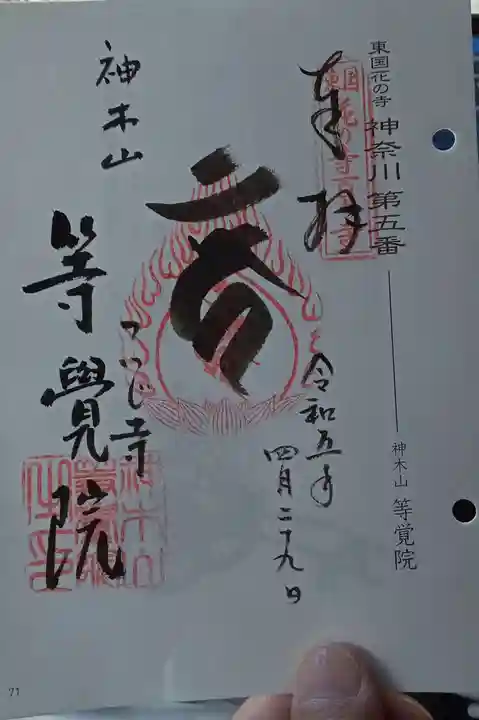 東国花の寺 神奈川 第五番
神木山 等覚院
奉拝
令和五年
四月二十九日
つつじ寺
神木山
等覺院
71